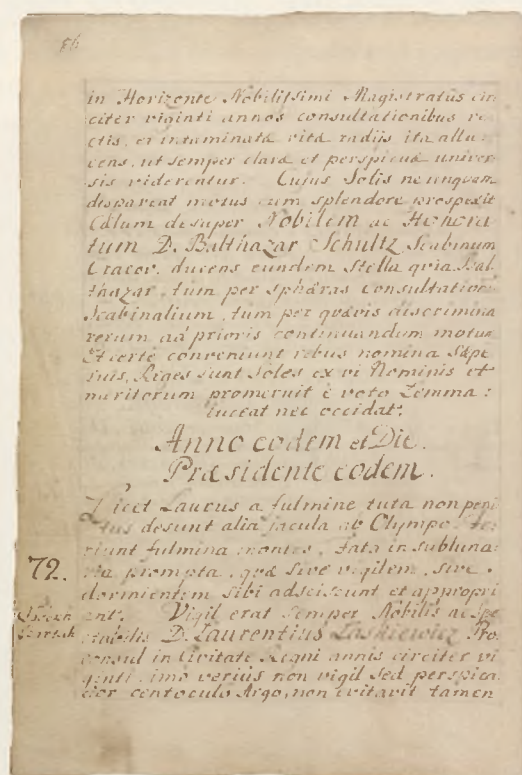 86
in Horizonte Nobilissimi Magistratus cir
citer viginti annos consultationibus re
ctis, et intaminatâ vitâ radijs ita allu
cens, ut semper clara et perspicua univer
sis viderentur. Cujus Solis ne unquam
dispareat motus cum splendore prospexit
Cælum desuper Nobilem ac Honora
tum D. Balthazar Schultz Scabinum
Cracov. ducens eundem Stella quia Bal
thazar, tum per sphæras Consultation
Scabinalium, tum per quævis discrimina
rerum ad prioris continuandum motum
Et certè conveniunt rebus nomina sæpe
suis, Reges sunt Soles ex vi Nominis et
meritorum promeruit è voto Lemma:
luceat nec occidat.
Anno eodem et Die.
Præsidente eodem.
Licet Laurus a fulmine tuta non peni
tus desunt alia jacula ab Olympo. Fe
riunt fulmina montes, fata in subluna
72.
ria prompta, quæ sive vigilem, sive
dormientem sibi adsciscunt et appropri
ent. Vigil erat semper Nobilis ac Spe
ctabilis D. Laurentius Laskiewicz Pro
consul in Civitate Regni annis circiter vi
ginti, imo verius non vigil sed perspica
cior centoculo Argo, non evitavit tamen